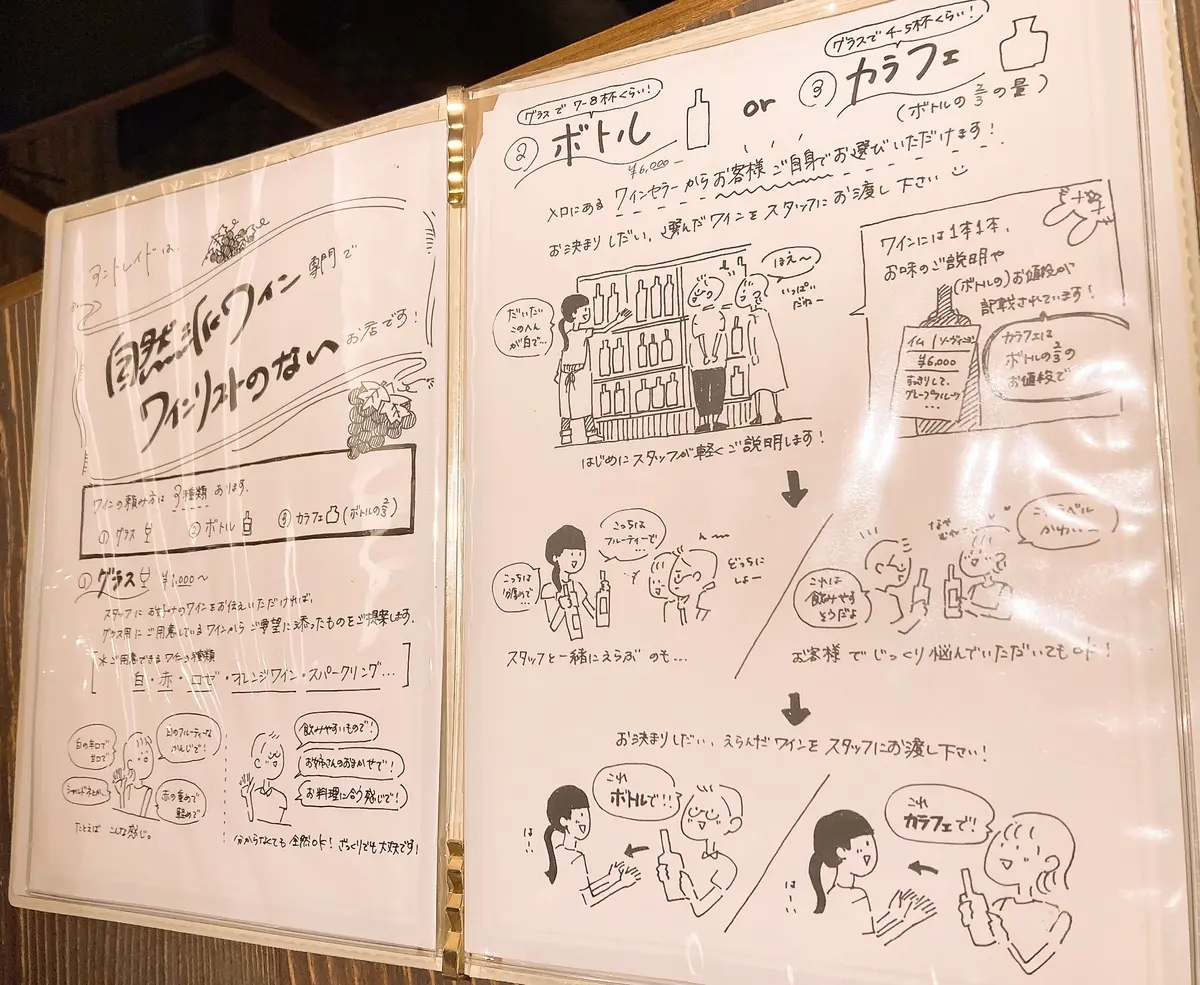 サントレイドは、
自然派ワイン専門で
ワインリストのないお店です！
ワインの頼み方は 3種類 あります。
① グラス ② ボトル ③ カラフェ (ボトルの2/3)
① グラス ¥1,000～
スタッフにお好みのワインをお伝えいただければ、
グラス用にご用意しているワインからご希望に添ったものをご提案します。
※ご用意できるワインの種類
白・赤・ロゼ・オレンジワイン・スパークリング…
白の辛口で
甘口で
白のフルーティーな
かんじで！
赤の重めで
軽めで
たとえば こんな感じ。
飲みやすいもので！
お姉さんのおまかせで！
お料理に合う感じで！
分からなくても全然OK！ざっくりでも大丈夫です！
グラスで 7-8杯くらい！
② ボトル
¥6,000～
or
グラスで 4-5杯くらい！
③ カラフェ
(ボトルの2/3の量)
入口にある ワインセラーから お客様 ご自身で お選びいただけます！
お決まりしだい、選んだワインを スタッフに お渡し 下さい
だいたい
このへん
が白で…
ほえ～
いっぱい
だねー
はじめに スタッフが 軽く ご説明します！
ワインには1本1本、
お味のご説明や
(ボトルの)お値段が
記載されています！
¥6,000
すっきりして、
グレープフルーツ
…
カラフェは
ボトルの2/3の
お値段で
こっちは
フルーティーで…
こっちは
ん～
どっちに
しよー
スタッフと一緒にえらぶ のも…
これは
飲みやす
そうだよ
なや
むわー
ラベル
かわいー
お客様 で じっくり 悩んでいただいても OK！
お決まりしだい、えらんだ ワインを スタッフにお渡し 下さい！
これ
ボトルで!!
は
い
これ
カラフェで！
は
い